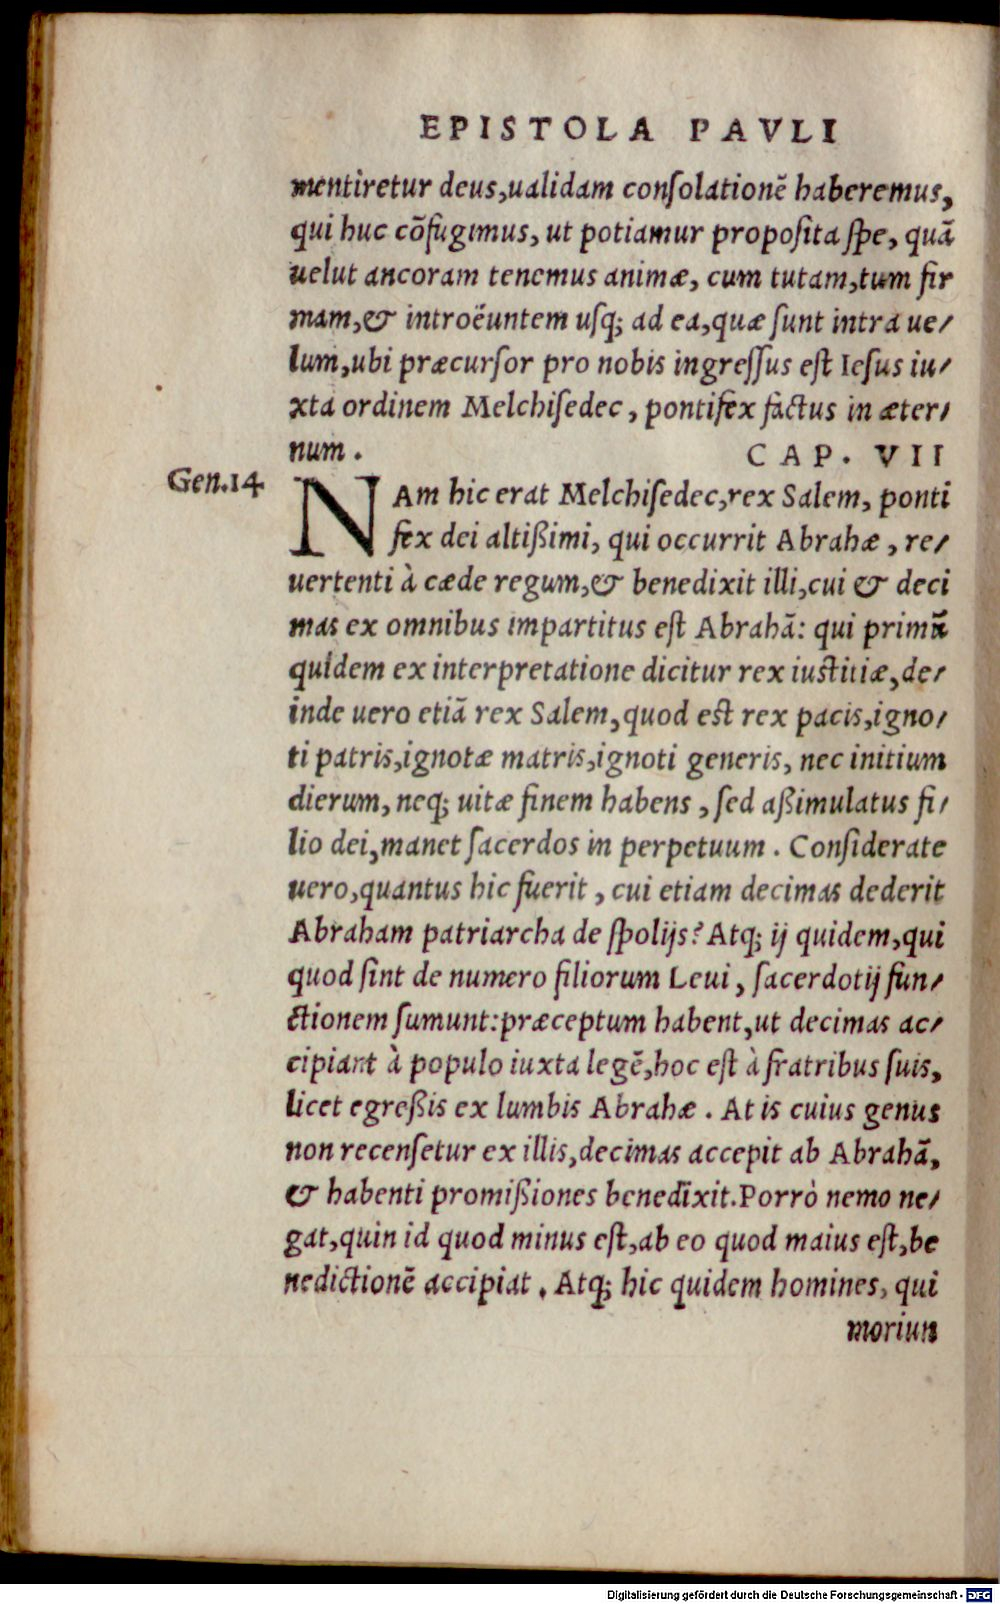 EPISTOLA PAVLI
mentiretur deus,ualidam conſolationē haberemus,
qui huc cōfugimus, ut potiamur propoſita ſpe, quā
uelut ancoram tenemus animæ, cum tutam,tum fir
mam,& introëuntem uſq; ad ea,quæ ſunt intra ue/
lum,ubi præcurſor pro nobis ingreſſus eſt Ieſus iu/
xta ordinem Melchiſedec, pontifex factus in æter/
num.
CAP. VII
Gen.14
NAm hic erat Melchiſedec,rex Salem, ponti
fex dei altißimi, qui occurrit Abrahæ, re/
uertenti à cæde regum,& benedixit illi,cui & deci
mas ex omnibus impartitus eſt Abrahā: qui primū
quidem ex interpretatione dicitur rex iuſtitiæ,de/
inde uero etiā rex Salem,quod eſt rex pacis,igno/
ti patris,ignotæ matris,ignoti generis, nec initium
dierum, neq; uitæ finem habens, ſed aßimulatus fi/
lio dei,manet ſacerdos in perpetuum. Conſiderate
uero,quantus hic fuerit, cui etiam decimas dederit
Abraham patriarcha de ſpolijs? Atq; ij quidem,qui
quod ſint de numero filiorum Leui, ſacerdotij fun/
ctionem ſumunt:præceptum habent,ut decimas ac/
cipiant à populo iuxta legē,hoc eſt à fratribus ſuis,
licet egreßis ex lumbis Abrahæ. At is cuius genus
non recenſetur ex illis,decimas accepit ab Abrahā,
& habenti promißiones benedixit.Porrò nemo ne/
gat,quin id quod minus eſt,ab eo quod maius eſt,be
nedictionē accipiat. Atq; hic quidem homines, qui
moriun
Digitalisierung gefördert durch die Deutsche Forschungsgemeinschaft - DFG